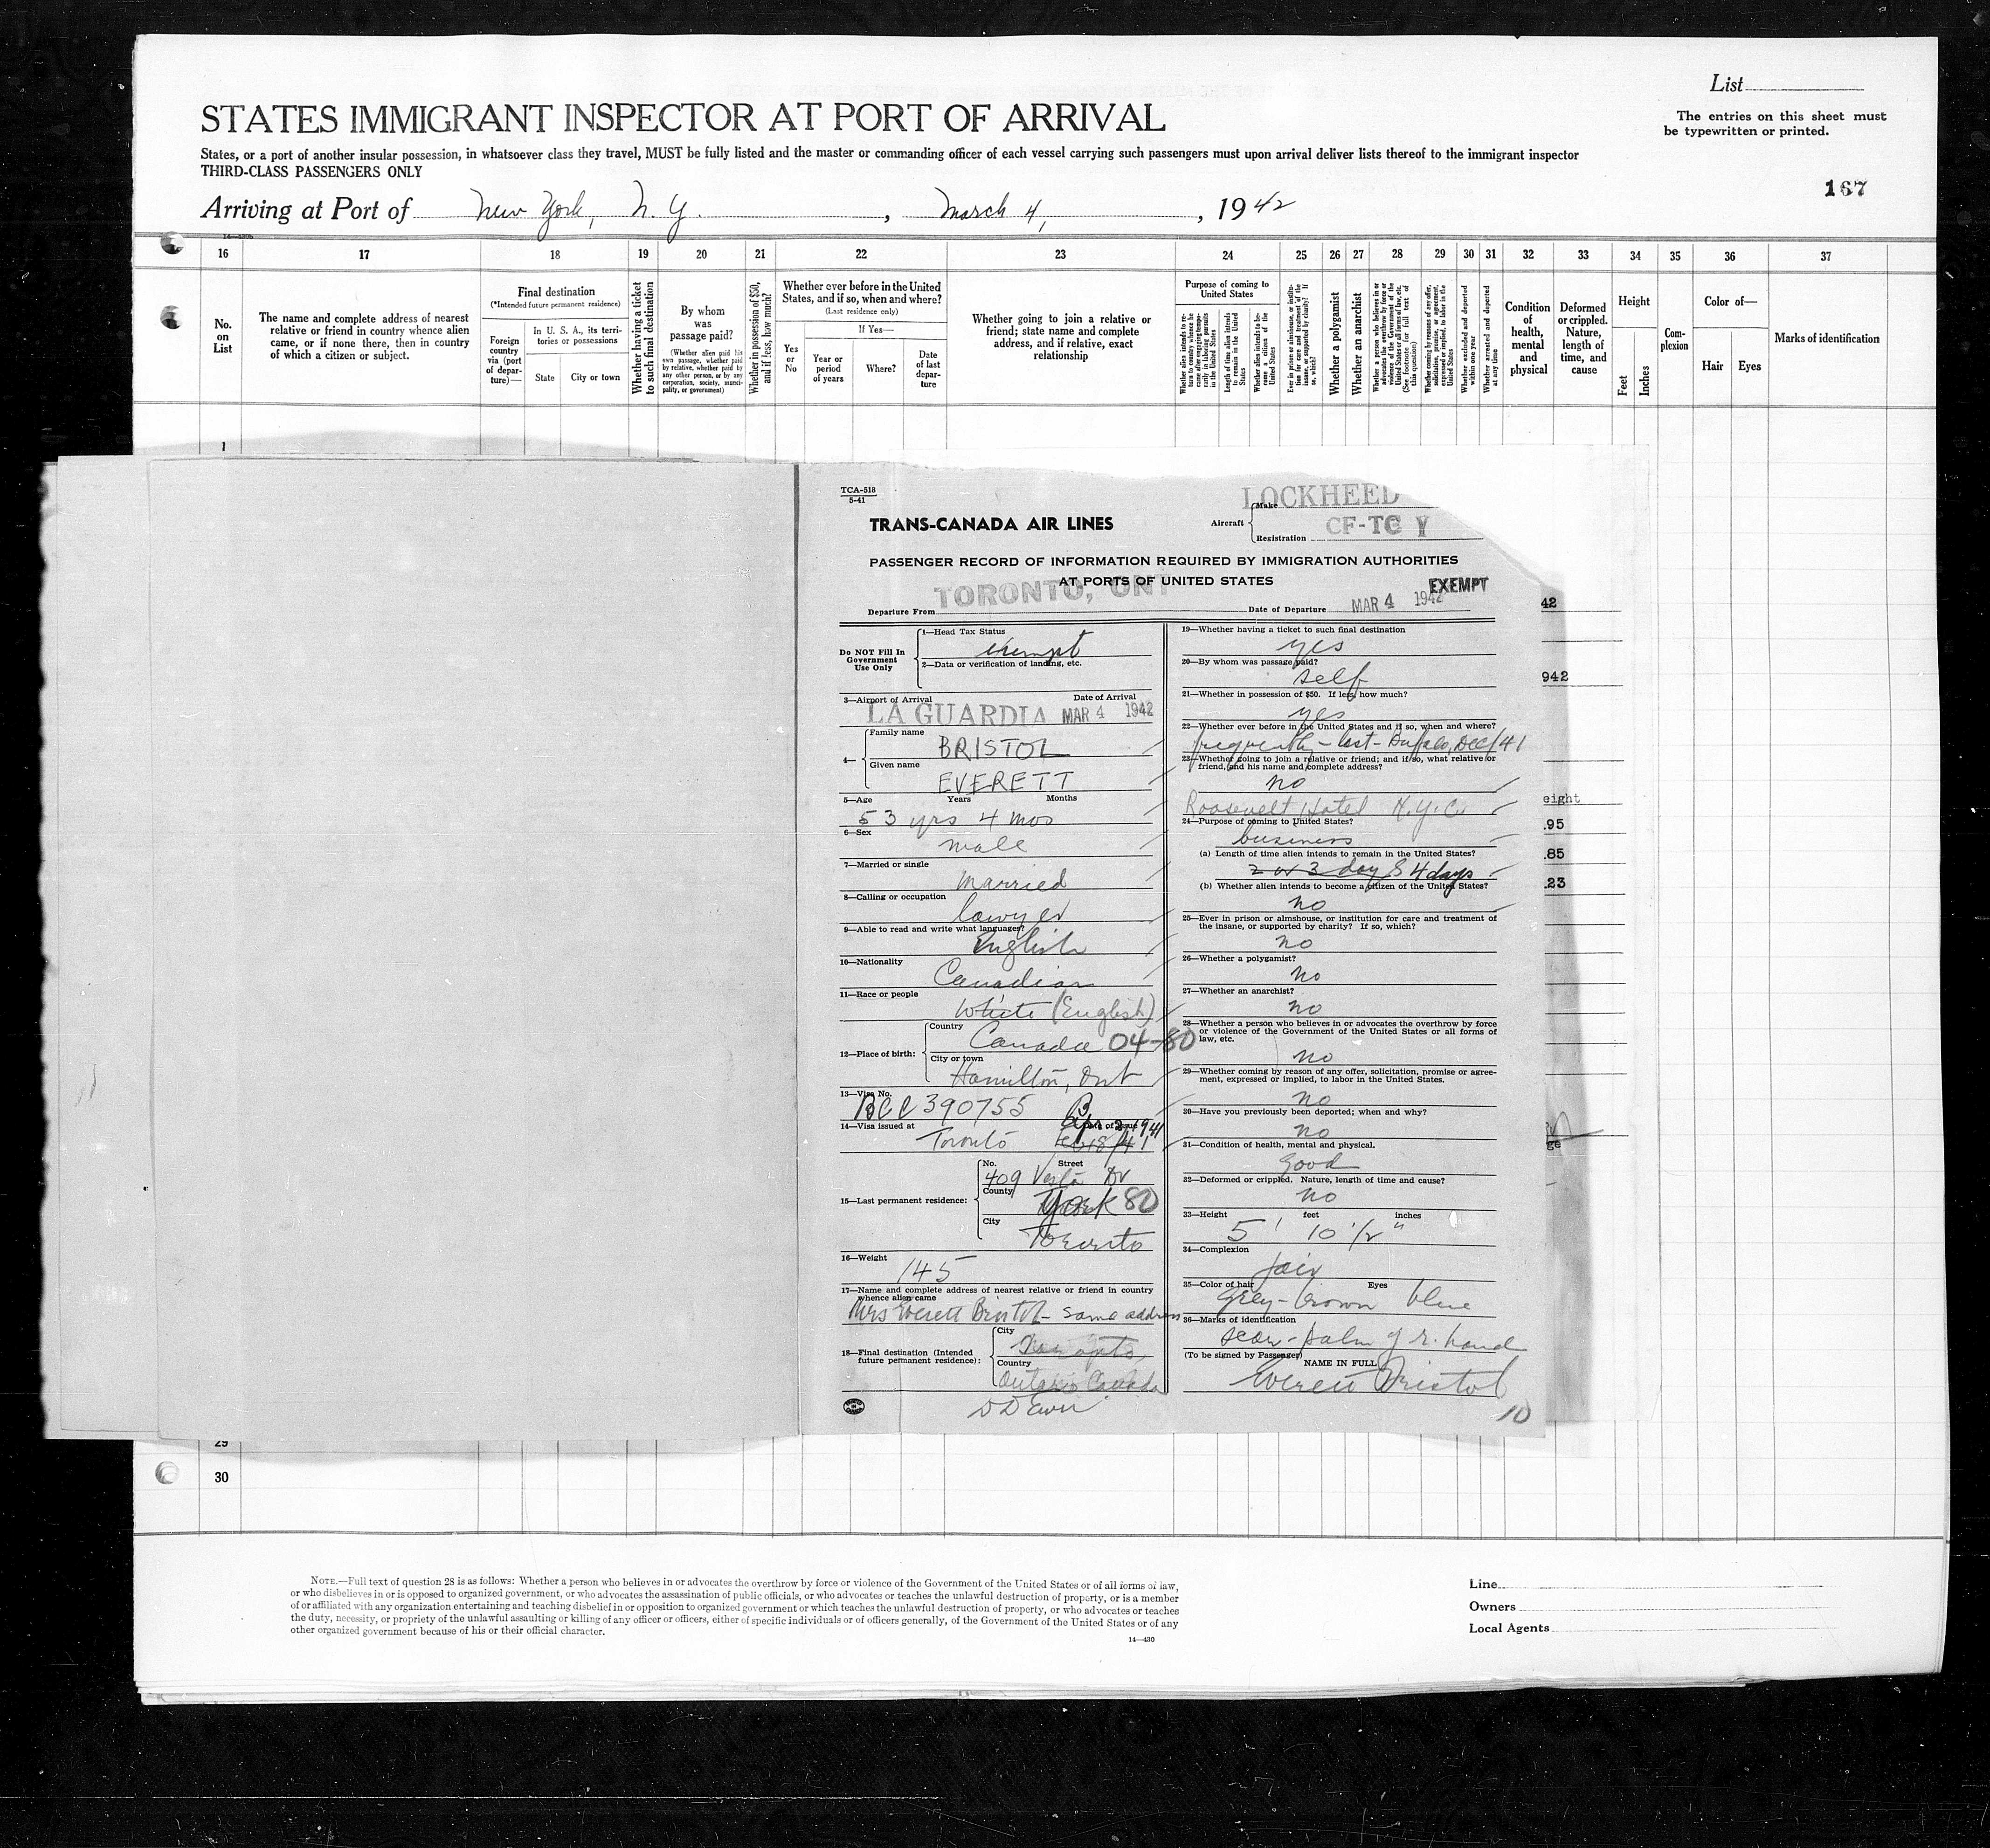 List
STATES IMMIGRANT INSPECTOR AT PORT OF ARRIVAL
The entries on this sheet must
be typewritten or printed.
States, or a port of another insular possession, in whatsoever class they travel, MUST be fully listed and the master or commanding officer of each vessel carrying such passengers must upon arrival deliver lists thereof to the immigrant inspector
THIRD-CLASS PASSENGERS ONLY
167
Arriving at Port of New York, N. Y. , March 4, , 1942
16 17 18 19 20 21 22 23 24 25 26 27 28 29 30 31 32 33 34 35 36 37
No. on List
The name and complete address of nearest
relative or friend in country whence alien
came, or if none there, then in country
of which a citizen or subject.
Final destination
(*Intended future permanent residence)
Foreign country via (port of departure)—
In U. S. A., its territories or possessions
State
City or town
Whether having a ticket to such final destination
By whom was passage paid?
(Whether alien paid his own passage, whether paid by relative, whether paid by any other person, or by any corporation, society, municipality, or government)
Whether in possession of $50, and if less, how much?
Whether ever before in the United States, and if so, when and where?
(Last residence only)
If Yes—
Yes or No
Year or period of years
Where?
Date of last departure
Whether going to join a relative or
friend; state name and complete
address, and if relative, exact
relationship
Purpose of coming to United States
Whether alien intends to return to country whence he came after engaging temporarily in laboring pursuits in the United States
Length of time alien intends to remain in the United States
Whether alien intends to become a citizen of the United States
Ever in prison or almshouse, or institution for care and treatment of the insane, or supported by charity? If so, which?
Whether a polygamist
Whether an anarchist
Whether a person who believes in or advocates the overthrow by force or violence of the Government of the United States or all forms of law, etc. (See footnote for full text of this question)
Whether coming by reasons of any offer, solicitation, promise, or agreement, expressed or implied, to labor in the United States
Whether excluded and deported within one year
Whether arrested and deported at any time
Condition of health, mental and physical
Deformed or crippled. Nature, length of time, and cause
Height
Feet
Inches
Complexion
Color of—
Hair
Eyes
Marks of identification
1
TCA-518
5-41
TRANS-CANADA AIR LINES
Aircraft
Make LOCKHEED
Registration CF-TC Y
PASSENGER RECORD OF INFORMATION REQUIRED BY IMMIGRATION AUTHORITIES
AT PORTS OF UNITED STATES
EXEMPT
Departure From TORONTO, ONT
Date of Departure MAR 4 1942
Do NOT Fill In
Government
Use Only
1—Head Tax Status
exempt
2—Data or verification of landing, etc.
3—Airport of Arrival Date of Arrival
LA GUARDIA MAR 4 1942
4—
Family name
BRISTOL
Given name
EVERETT
5—Age Years Months
53 yrs 4 mos
6—Sex
male
7—Married or single
married
8—Calling or occupation
lawyer
9—Able to read and write what languages?
English
10—Nationality
Canadian
11—Race or people
White (English)
12—Place of birth:
Country
Canada 04-80
City or town
Hamilton, Ont
13—Visa No.
BCC 390755
14—Visa issued at Date of issue
Toronto
15—Last permanent residence:
No. Street
409 Vesta Dr
County
York 80
City
Toronto
16—Weight
145
17—Name and complete address of nearest relative or friend in country
whence alien came
Mrs Everett Bristol - same address
18—Final destination (Intended
future permanent residence):
City
Toronto,
Country
Ontario Canada
19—Whether having a ticket to such final destination
yes
20—By whom was passage paid?
self
21—Whether in possession of $50. If less, how much?
yes
22—Whether ever before in the United States and if so, when and where?
frequently - last - Buffalo, Dec/41
23—Whether going to join a relative or friend; and if so, what relative or
friend, and his name and complete address?
no
Roosevelt Hotel N.Y.C.
24—Purpose of coming to United States?
business
(a) Length of time alien intends to remain in the United States?
2 or 3 days 4 days
(b) Whether alien intends to become a citizen of the United States?
no
25—Ever in prison or almshouse, or institution for care and treatment of
the insane, or supported by charity? If so, which?
no
26—Whether a polygamist?
no
27—Whether an anarchist?
no
28—Whether a person who believes in or advocates the overthrow by force
or violence of the Government of the United States or all forms of
law, etc.
no
29—Whether coming by reason of any offer, solicitation, promise or agree-
ment, expressed or implied, to labor in the United States.
no
30—Have you previously been deported; when and why?
no
31—Condition of health, mental and physical.
good
32—Deformed or crippled. Nature, length of time and cause?
no
33—Height feet inches
5' 10 1/2"
34—Complexion
fair
35—Color of hair Eyes
grey-brown blue
36—Marks of identification
scar - palm of r. hand
(To be signed by Passenger)
NAME IN FULL
Everett Bristol
10
42
942
eight
.95
.85
.23
ge
29
30
NOTE.—Full text of question 28 is as follows: Whether a person who believes in or advocates the overthrow by force or violence of the Government of the United States or of all forms of law,
or who disbelieves in or is opposed to organized government, or who advocates the assassination of public officials, or who advocates or teaches the unlawful destruction of property, or is a member
of or affiliated with any organization entertaining and teaching disbelief in or opposition to organized government or which teaches the unlawful destruction of property, or who advocates or teaches
the duty, necessity, or propriety of the unlawful assaulting or killing of any officer or officers, either of specific individuals or of officers generally, of the Government of the United States or of any
other organized government because of his or their official character.
14—430
Line
Owners
Local Agents